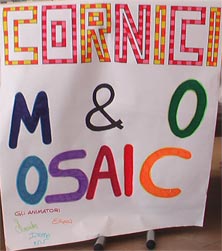 CORNICI
M & O
OSAIC
GLI ANIMATORI